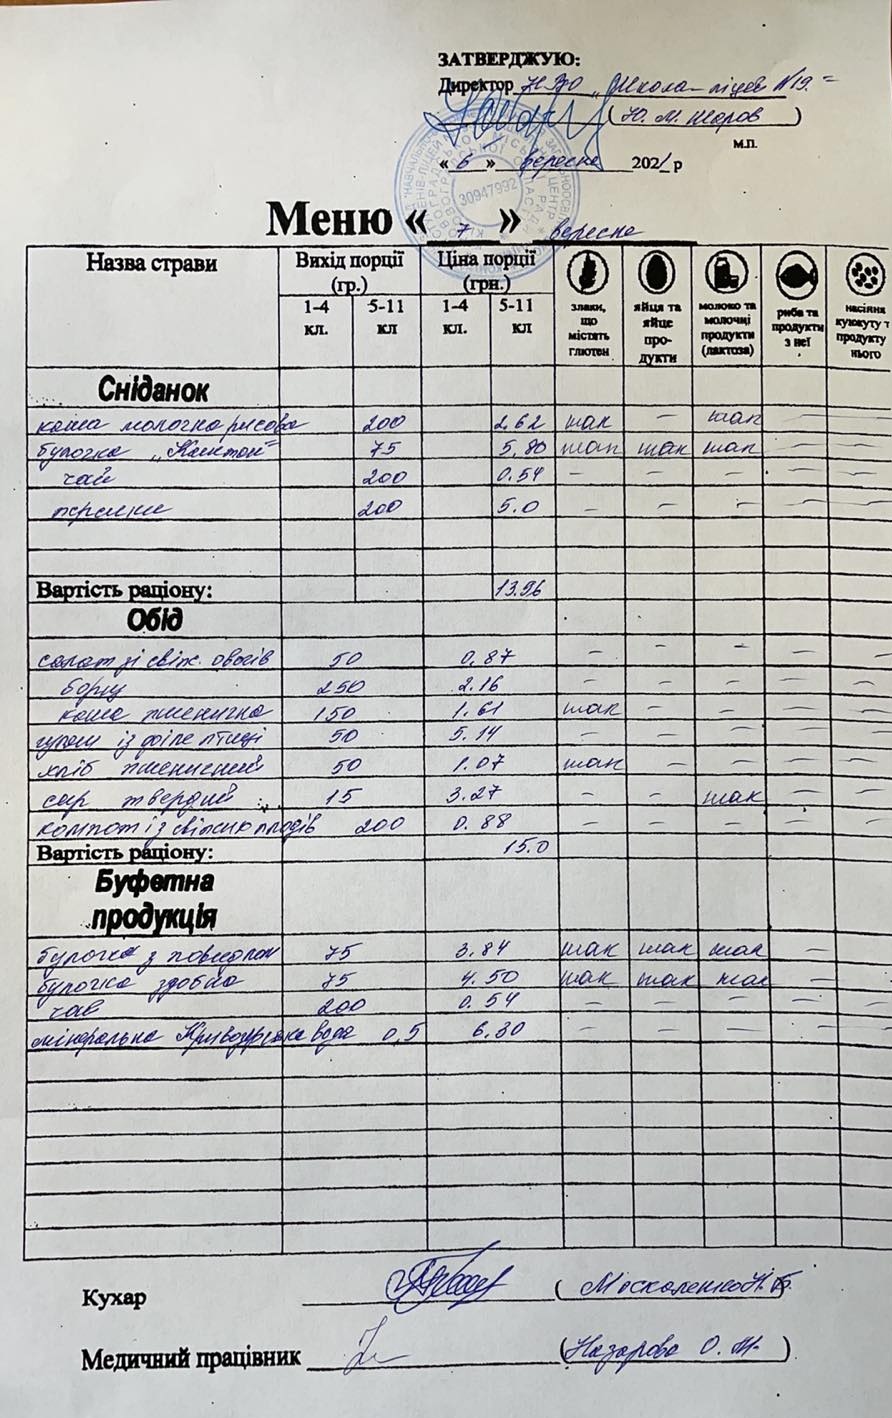 ЗАТВЕРДЖУЮ:
Директор НВО „Школа-ліцей №19"
(Ю. М. Жаров)
м.п.
« 6 » вересня 2021 р
30947992
Меню « 7 » вересня
Назва страви Вихід порції (гр.) Ціна порції (грн.) злаки, що містять глютен яйця та яйце про-дукти молоко та молочні продукти (лактоза) риба та продукти з неї насіння кунжуту т продукту нього
1-4 кл. 5-11 кл 1-4 кл. 5-11 кл
Сніданок
каша молочна рисова 200 2.62 так – так – –
булочка „ 75 5.80 так так так – –
чай 200 0.54 – – – – –
персики 200 5.0 – – – – –
Вартість раціону: 13.96
Обід
салат зі свіж. овочів 50 0.87 – – – – –
борщ 250 2.16 – – – – –
каша пшенична 150 1.61 так – – – –
гуляш із філе птиці 50 5.14 – – – – –
хліб пшеничний 50 1.07 так – – – –
сир твердий 15 3.27 – – так – –
компот із свіжих плодів 200 0.88 – – – – –
Вартість раціону: 15.0
Буфетна продукція
булочка з повидлом 75 3.84 так так так –
булочка здобна 75 4.50 так так так – –
чай 200 0.54 – – – – –
мінеральна вода 0,5 6.30 – – – – –
Кухар (Москаленко Н. В.)
Медичний працівник (Назарова О. М.)